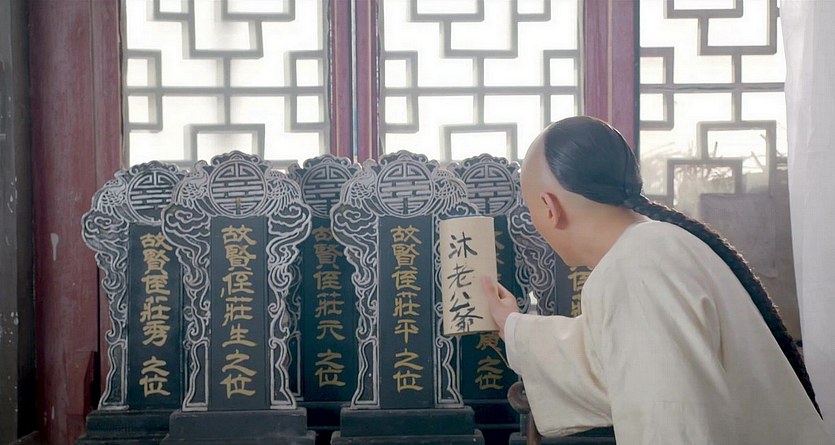 故賢侄莊秀之位
故賢侄莊生之位
故賢侄莊元之位
故賢侄莊平之位
沐老公爺
之位